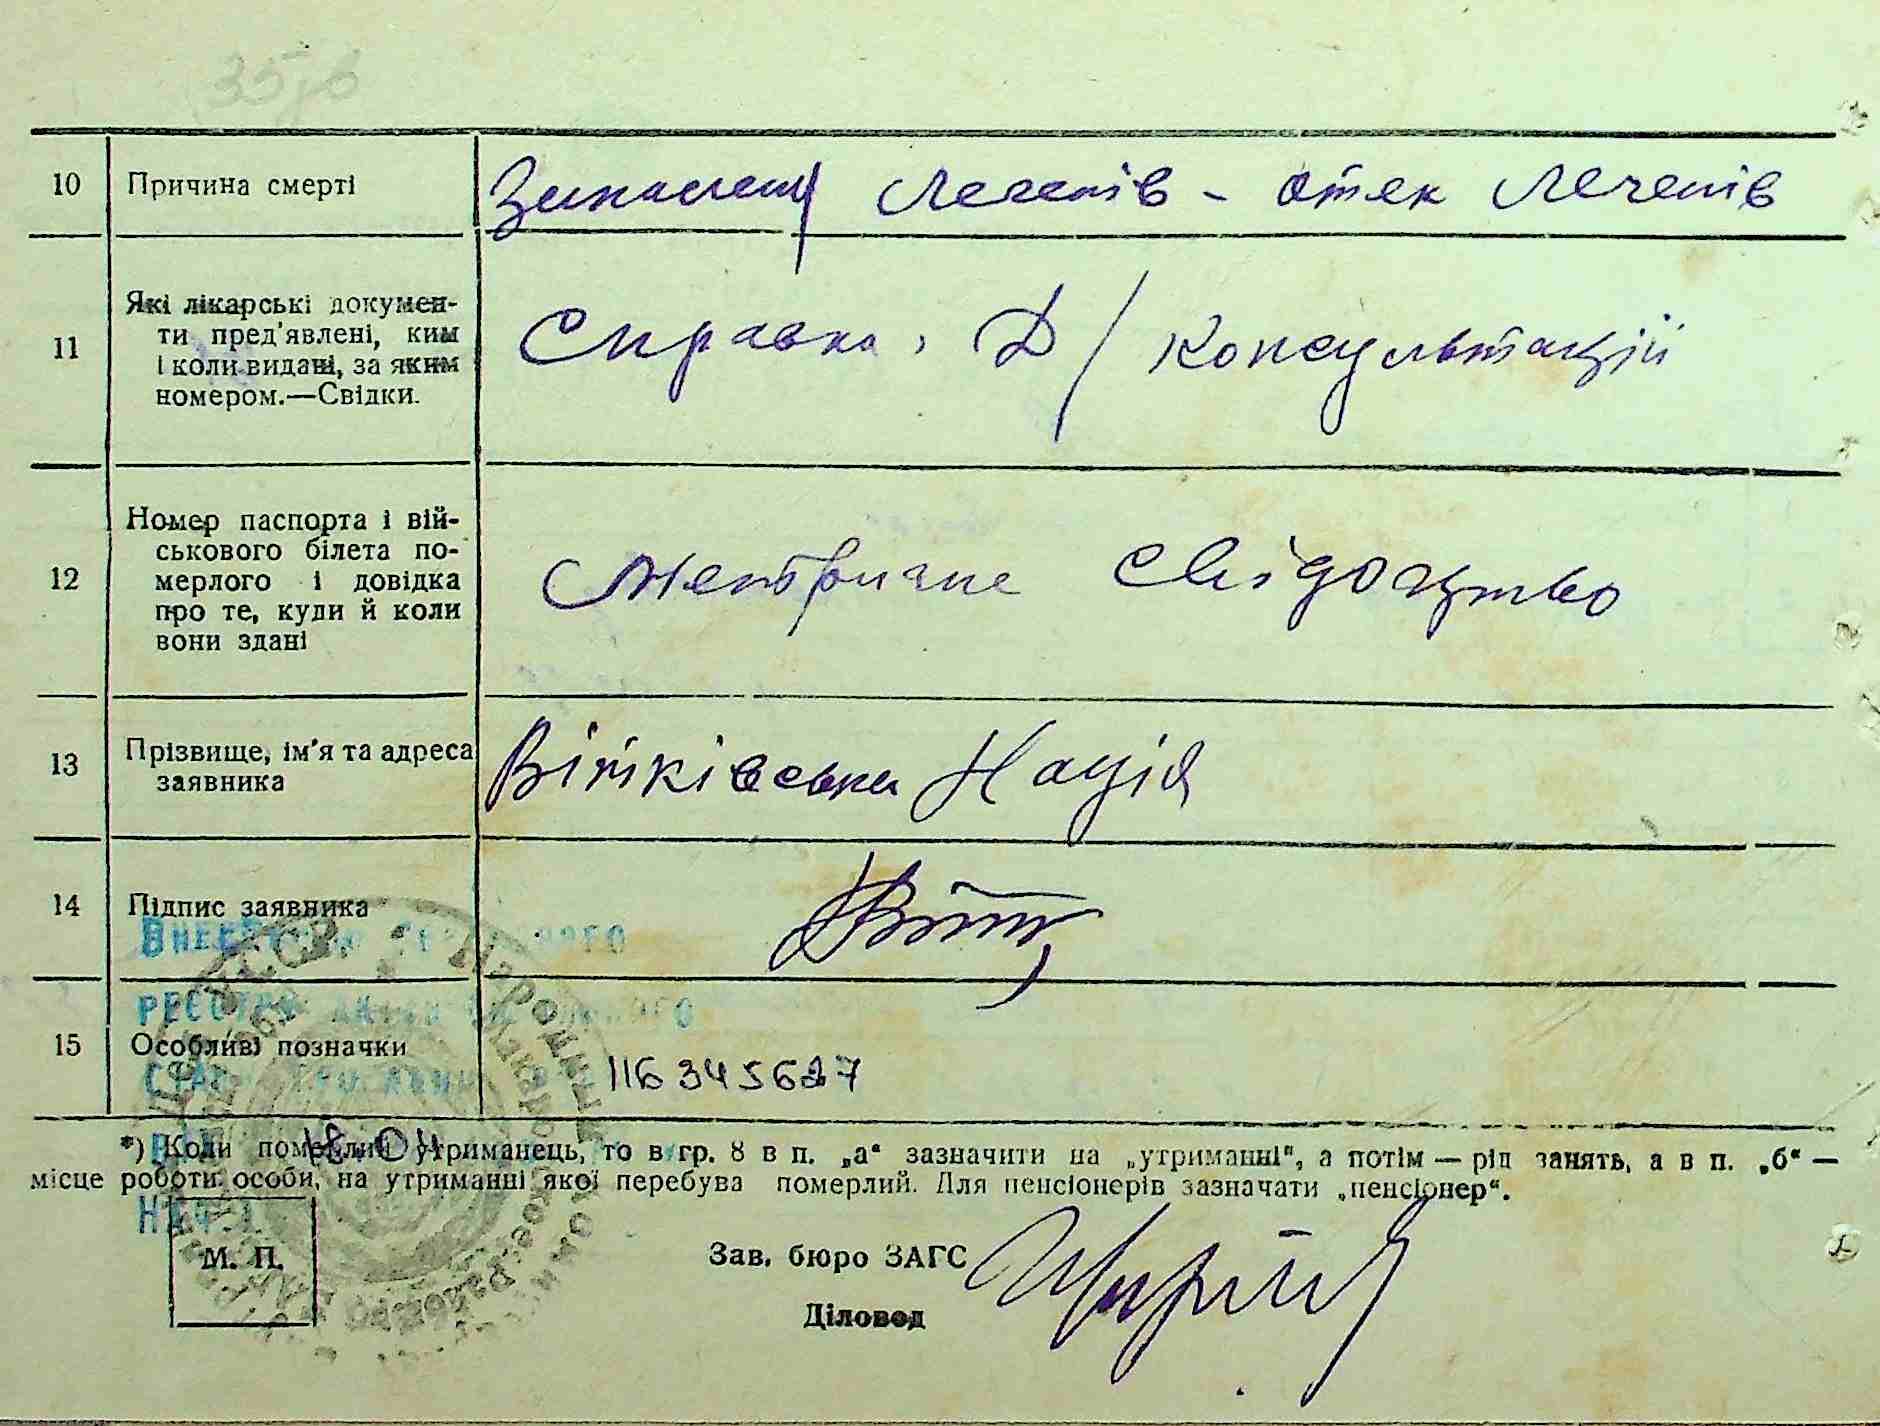 10 Причина смерті
легенів - отек легенів
11 Які лікарські докумен-
ти пред'явлені, ким
і коли видані, за яким
номером.—Свідки.
Справка, Д/Консультації
12 Номер паспорта і вій-
ськового білета по-
мерлого і довідка
про те, куди й коли
вони здані
Метричне свідоцтво
13 Прізвище, ім'я та адреса
заявника
Війківська
14 Підпис заявника
15 Особливі позначки
116345627
18.04
*) Коли померлий утриманець, то в гр. 8 в п. „а“ зазначити на „утриманні“, а потім — рід занять, а в п. „б“ —
місце роботи особи, на утриманні якої перебува померлий. Для пенсіонерів зазначати „пенсіонер“.
М. П.
Зав. бюро ЗАГС
Діловод